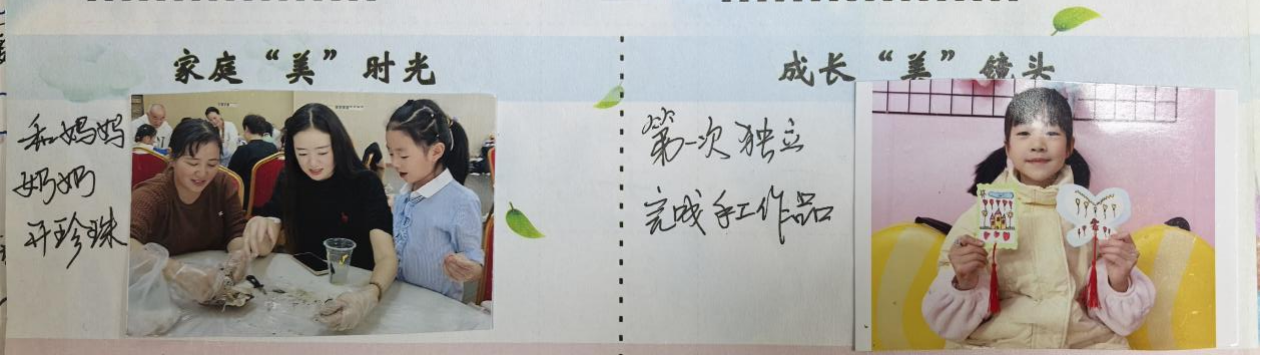 家庭“美”时光
和妈妈
妈妈
开珍珠
成长“美”镜头
第一次独立
完成手工作品